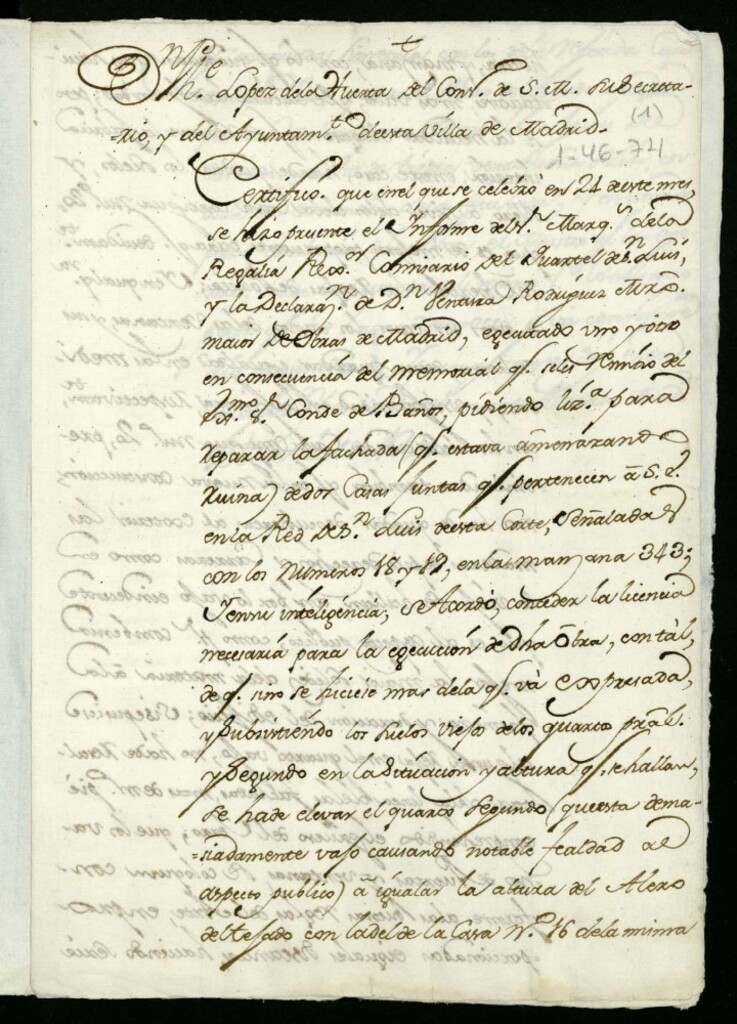 +
Dn. Phe. Lopez dela Huerta del Conso. de S. M. su Secreta-
=rio, y del Ayuntamto. deesta Villa de Madrid.
(1)
1-46-74
Certifico. que enel que se celebró en 24 deeste mes,
se hizo presente el Informe del Sr. Marqs. dela
Regalia Rexor. Comisario del Quartel de Sn. Luis,
y la Declaran. de Dn. Ventura Rodriguez Mro.
maior de Obras de Madrid, egecutado uno y otro
en consecuencia del memorial qe. seles remitio del
Exmo. Sr. Conde de Baños, pidiendo liza. para
reparar la fachada (qe. estava amenazando
ruina) dedos Casas juntas qe. pertenecen a S. E.
enla Red de Sn. Luis deesta Corte, Señaladas
con los numeros 18 y 19, enla manzana 343;
Yensu inteligencia, se Acordó, conceder la licencia
necesaria para la egecucion de dha Obra, con tal,
de qe. sino se hiciese mas dela qe. vá expresada,
y subsistiendo los suelos viejos delos quartos pral.
y Segundo en la situacion y altura qe. se hallan,
se hade elevar el quarto segundo (que esta dema-
=siadamente vajo causando notable fealdad al
aspecto publico) a igualar la altura del Alero
del tejado con la del de la Casa No. 16 dela misma